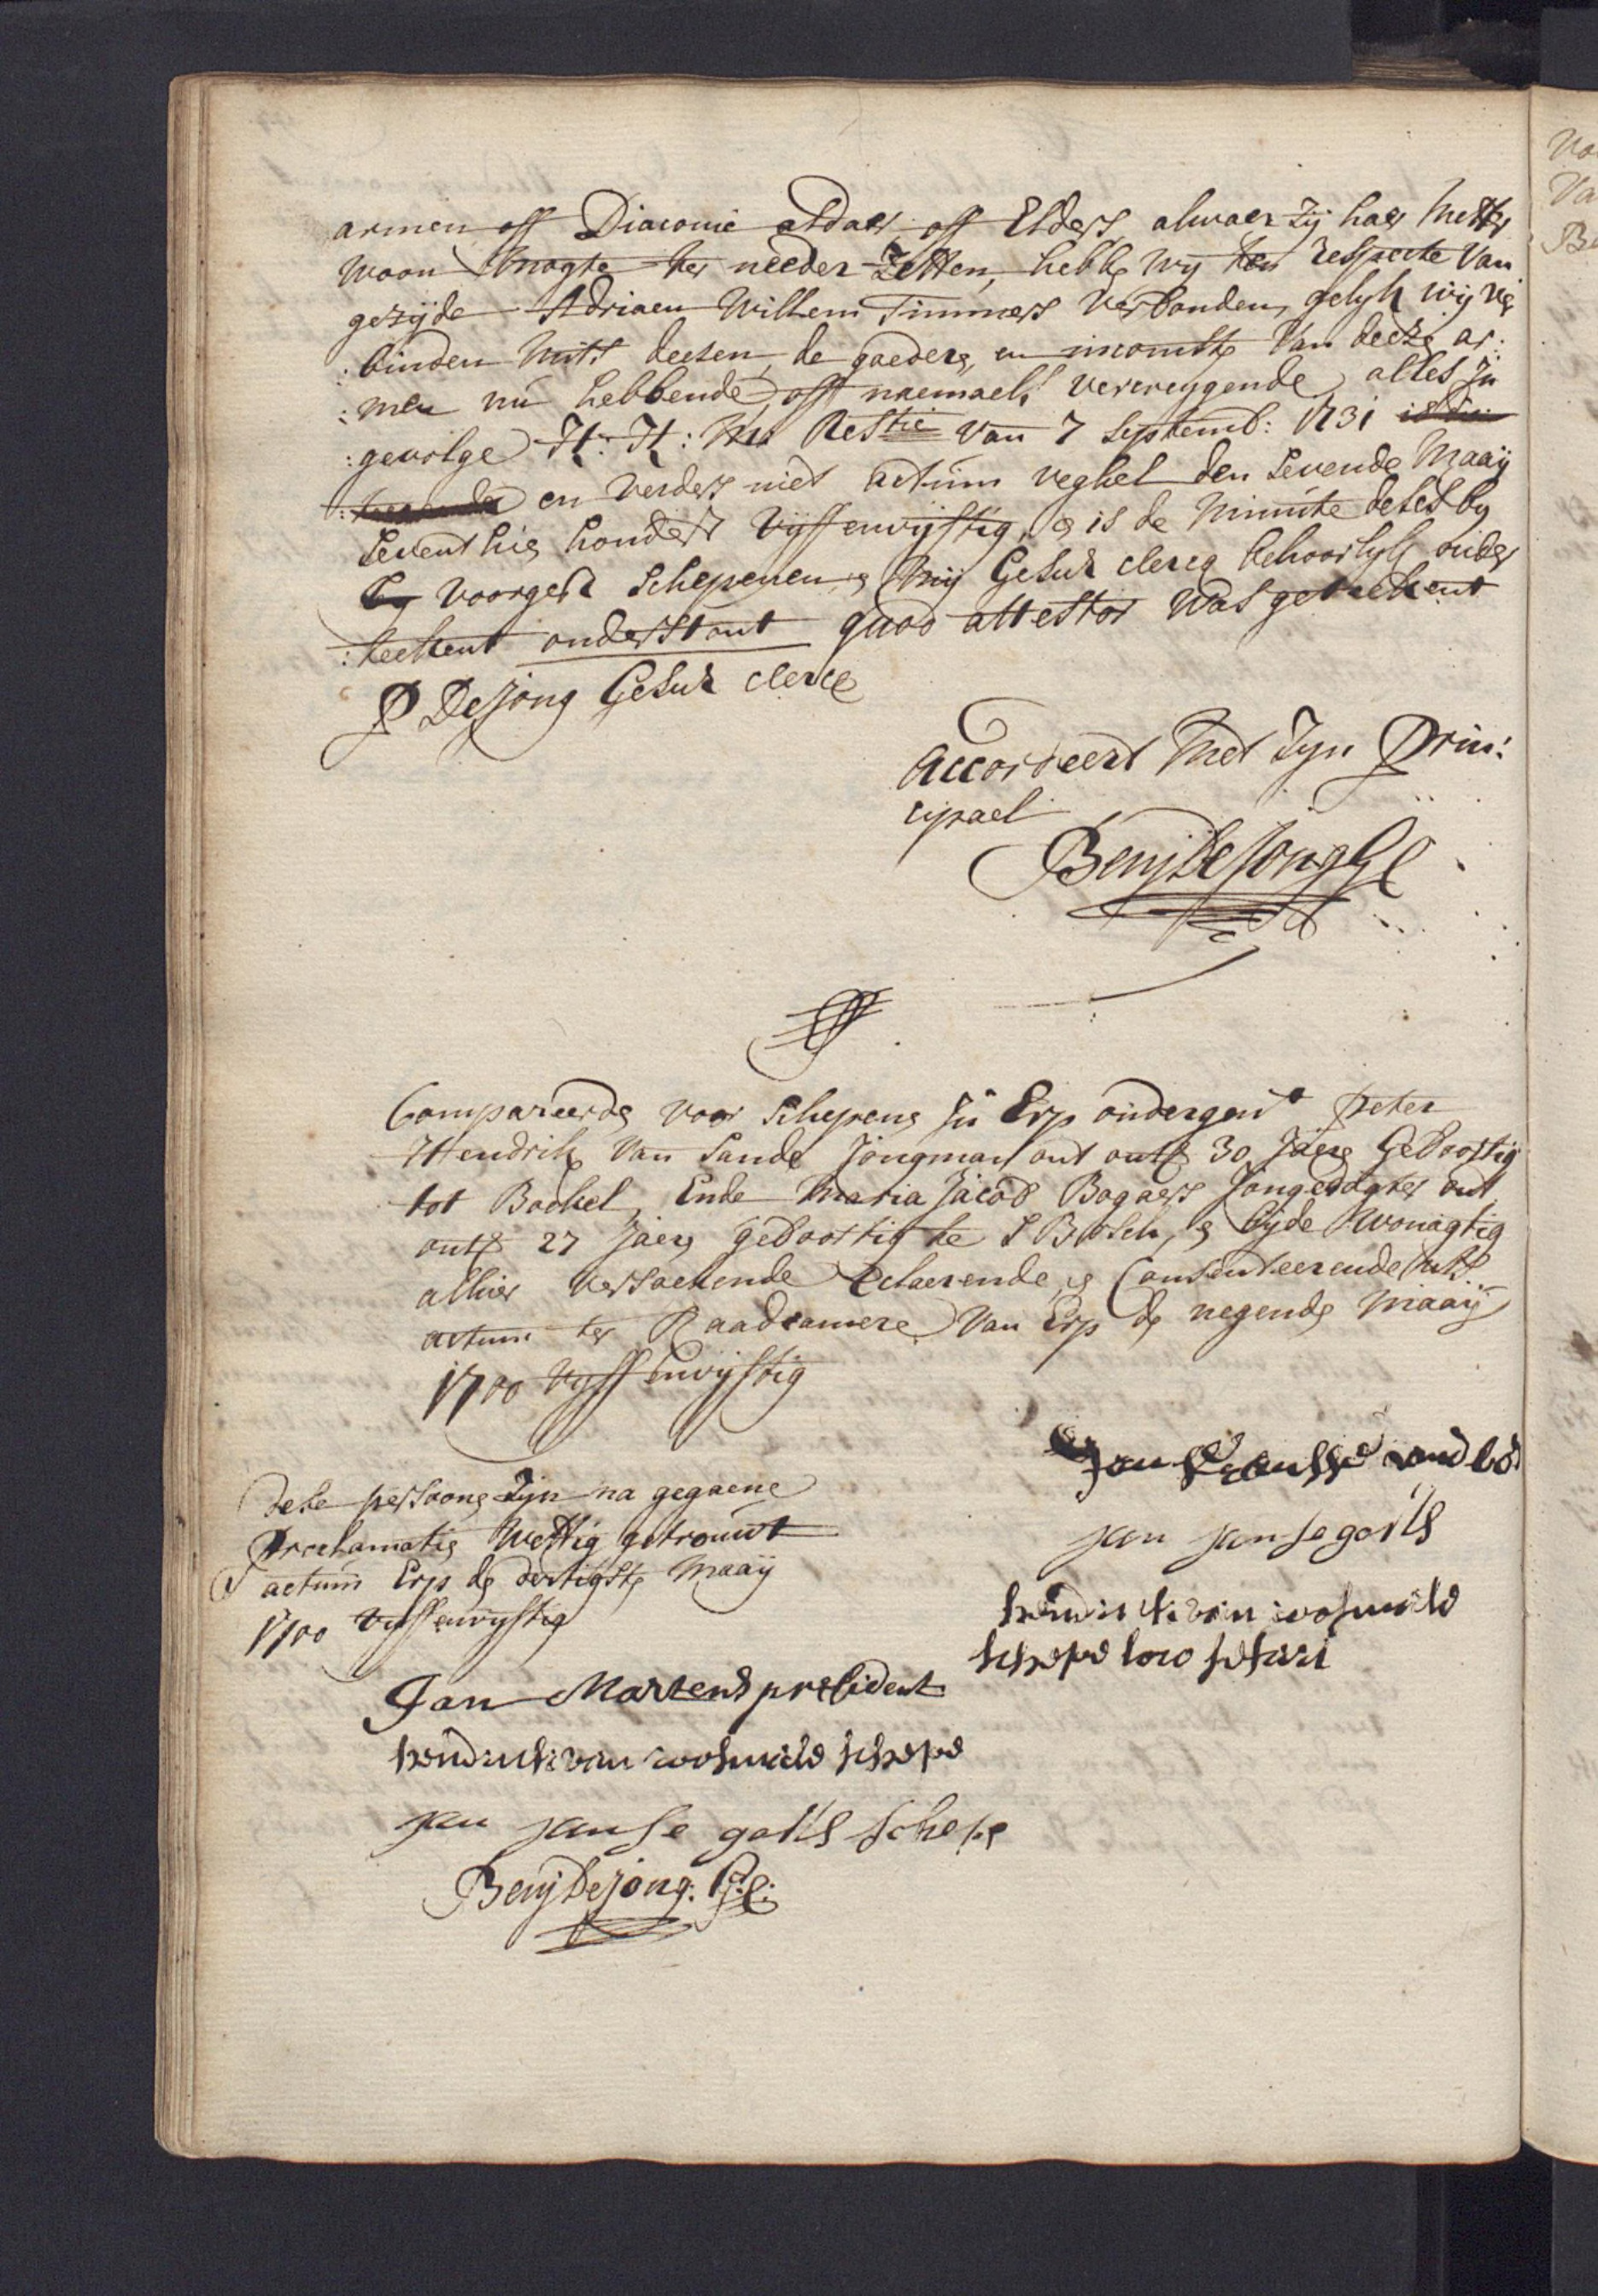 armen off Diaconie aldaer off Elders, alwaer zij haer metter
woon mogte ter needer zetten, hebbe wy ten respecte van
gezijde Adriaen Willem Timmers verbonden, gelyk wij ver
:binden mits deesen, de goedere, en incomste van deeze ar:
:men nu hebbende, off naemaels vercreygende, alles in
:gevolge H: H: Mo Restie van 7 Septemb: 1731
en verders niet actum veghel den sevende Maaij
seventhie hondert vijffenvijftig, e is de minute deses by
voorgeſt Schepenen, e mij Gesur clercq behoorlijk onder
:teekent onderstont quod attestor was geteekent
P De Jong Gesur clercq
Accordeert met zyn Prin:
cipael
Benj De Jong
Compareerde voor Schepene in Erp ondergent Peter
Hendrik van Sande Jongman out ontr 30 jaere Geboortig
tot Boekel, Ende Maria Jacob Bogaers Jongedogter out
ontr 27 jaere geboortig te S Bosch, e byde woonagtig
alhier versoekende eclaerende, e Consenteerende ut
actum ter Raadcamere van Erp de negende Maaij
1700 vyff envijftig
Jan
Jan Janse
hendrick van
schepe loco
Dese persoone zyn na gegaene
Proclamatie wettig getrouwt
actum Erp de dertigste Maaij
1700 vyffenvyftig
Jan Martens president
hendrick van schepe
Jan Janse schepe
Benj De Jong: